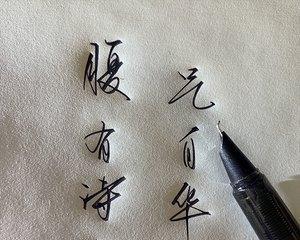 腹有诗
气自华